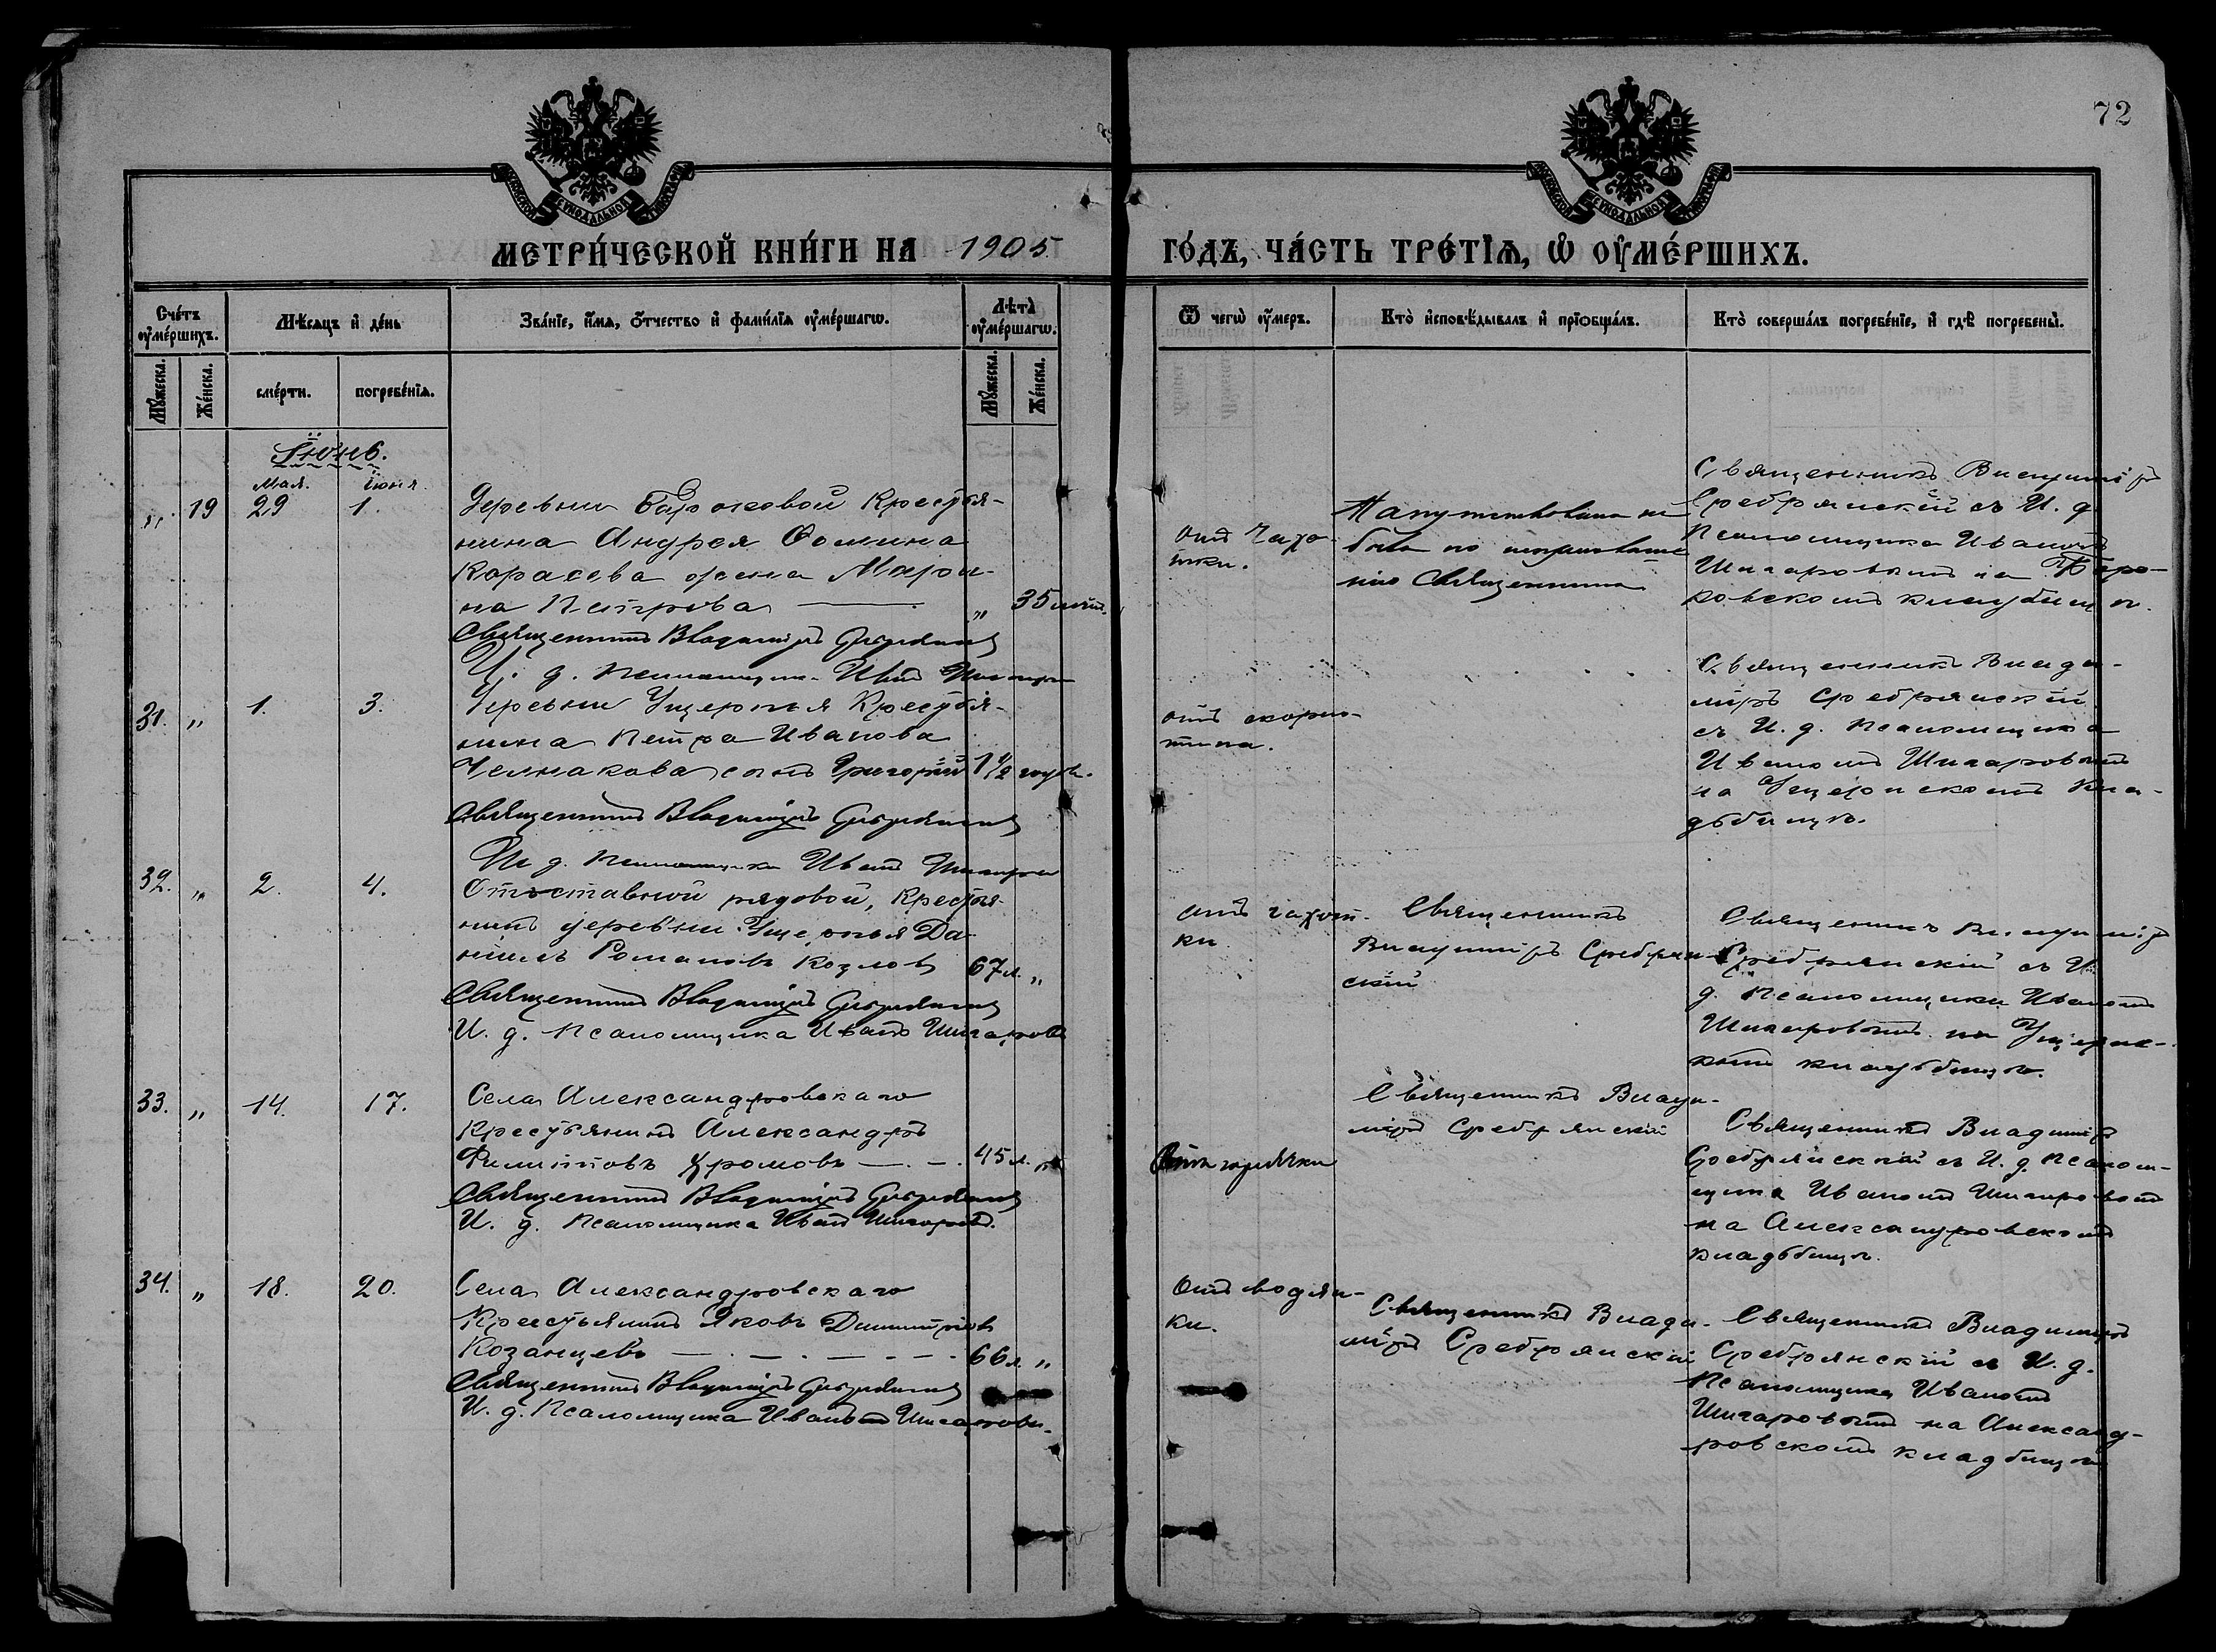 72
МЕТРИ́ЧЕСКОЙ КНИ́ГИ НА 1905
ГО́ДЪ, ЧА́СТЬ ТРЕ́ТІѦ, Ѡ҆ ОУ҆МЕ́РШИХЪ.
Сче́тъ оу҆ме́ршихъ.
Мѣ́сяцъ и҆ де́нь
Зва́нїе, и҆́мѧ, ѻ҆́тчество и҆ фами́лїѧ оу҆ме́ршагѡ.
Лѣ́та оу҆ме́ршагѡ.
Ѿ чегѡ̀ оу҆́меръ.
Кто̀ и҆сповѣ́дывалъ и҆ прїѡбща́лъ.
Кто̀ соверша́лъ погребе́нїе, и҆ гдѣ̀ погребены̀.
Мꙋ́жеска.
Же́нска.
сме́рти.
погребе́нїѧ.
Мꙋ́жеска.
Же́нска.
Іюнь.
Мая. Іюня.
„ 19 29 1.
Деревни Крестья-
нина Андрея Фомина
Карасева жена
на Петрова — „ 35 лѣт.
Священникъ Владиміръ Сребрянскій
И. д. Псаломщика Иванъ
отъ Чахо-
тки.
Напутствована не
была по
нію Священника
Священникъ Владиміръ
Сребрянскій съ И. д.
Псаломщика Иваномъ
Шигаровымъ на
ковскомъ кладбищѣ.
31. „ 1. 3.
Деревни Ущерпья Крестья-
нина Петра Иванова
сынъ Григорій 1 1/2 года.
Священникъ Владиміръ Сребрянскій
И. д. Псаломщика Иванъ Шигаровъ
отъ скорла-
тина.
Священникъ Влади-
міръ Сребрянскій
съ И. д. Псаломщика
Иваномъ Шигаровымъ
на Ущерпскомъ Кла-
дбищѣ.
32. „ 2. 4.
Отставной рядовой, Крестья-
нинъ деревни Ущерпья Да-
ніилъ Романовъ Козловъ 67 л. „
Священникъ Владиміръ Сребрянскій
И. д. Псаломщика Иванъ Шигаровъ
отъ чахот-
ки.
Священникъ
Владиміръ Сребрян-
скій
Священникъ Владиміръ
Сребрянскій съ И.
д. Псаломщика Иваномъ
Шигаровымъ на Ущерпс-
комъ кладбищѣ.
33. „ 14. 17.
Села Александровскаго
Крестьянинъ Александръ
Филипповъ Хромовъ — . — . 45 л. „
Священникъ Владиміръ Сребрянскій
И. д. Псаломщика Иванъ Шигаровъ.
Отъ горячки
Священникъ Влади-
міръ Сребрянскій
Священникъ Владиміръ
Сребрянскій съ И. д. Псалом-
щика Иваномъ Шигаровымъ
на Александровскомъ
кладбищѣ.
34. „ 18. 20.
Села Александровскаго
Крестьянинъ Яковъ Димитріевъ
Козанцевъ — . — . — . — — . 66 л. „
Священникъ Владиміръ Сребрянскій
И. д. Псаломщика Иванъ Шигаровъ.
Отъ водян-
ки.
Священникъ Влади-
міръ Сребрянскій
Священникъ Владиміръ
Сребрянскій съ И. д.
Псаломщика Иваномъ
Шигаровымъ на Александ-
ровскомъ кладбищѣ